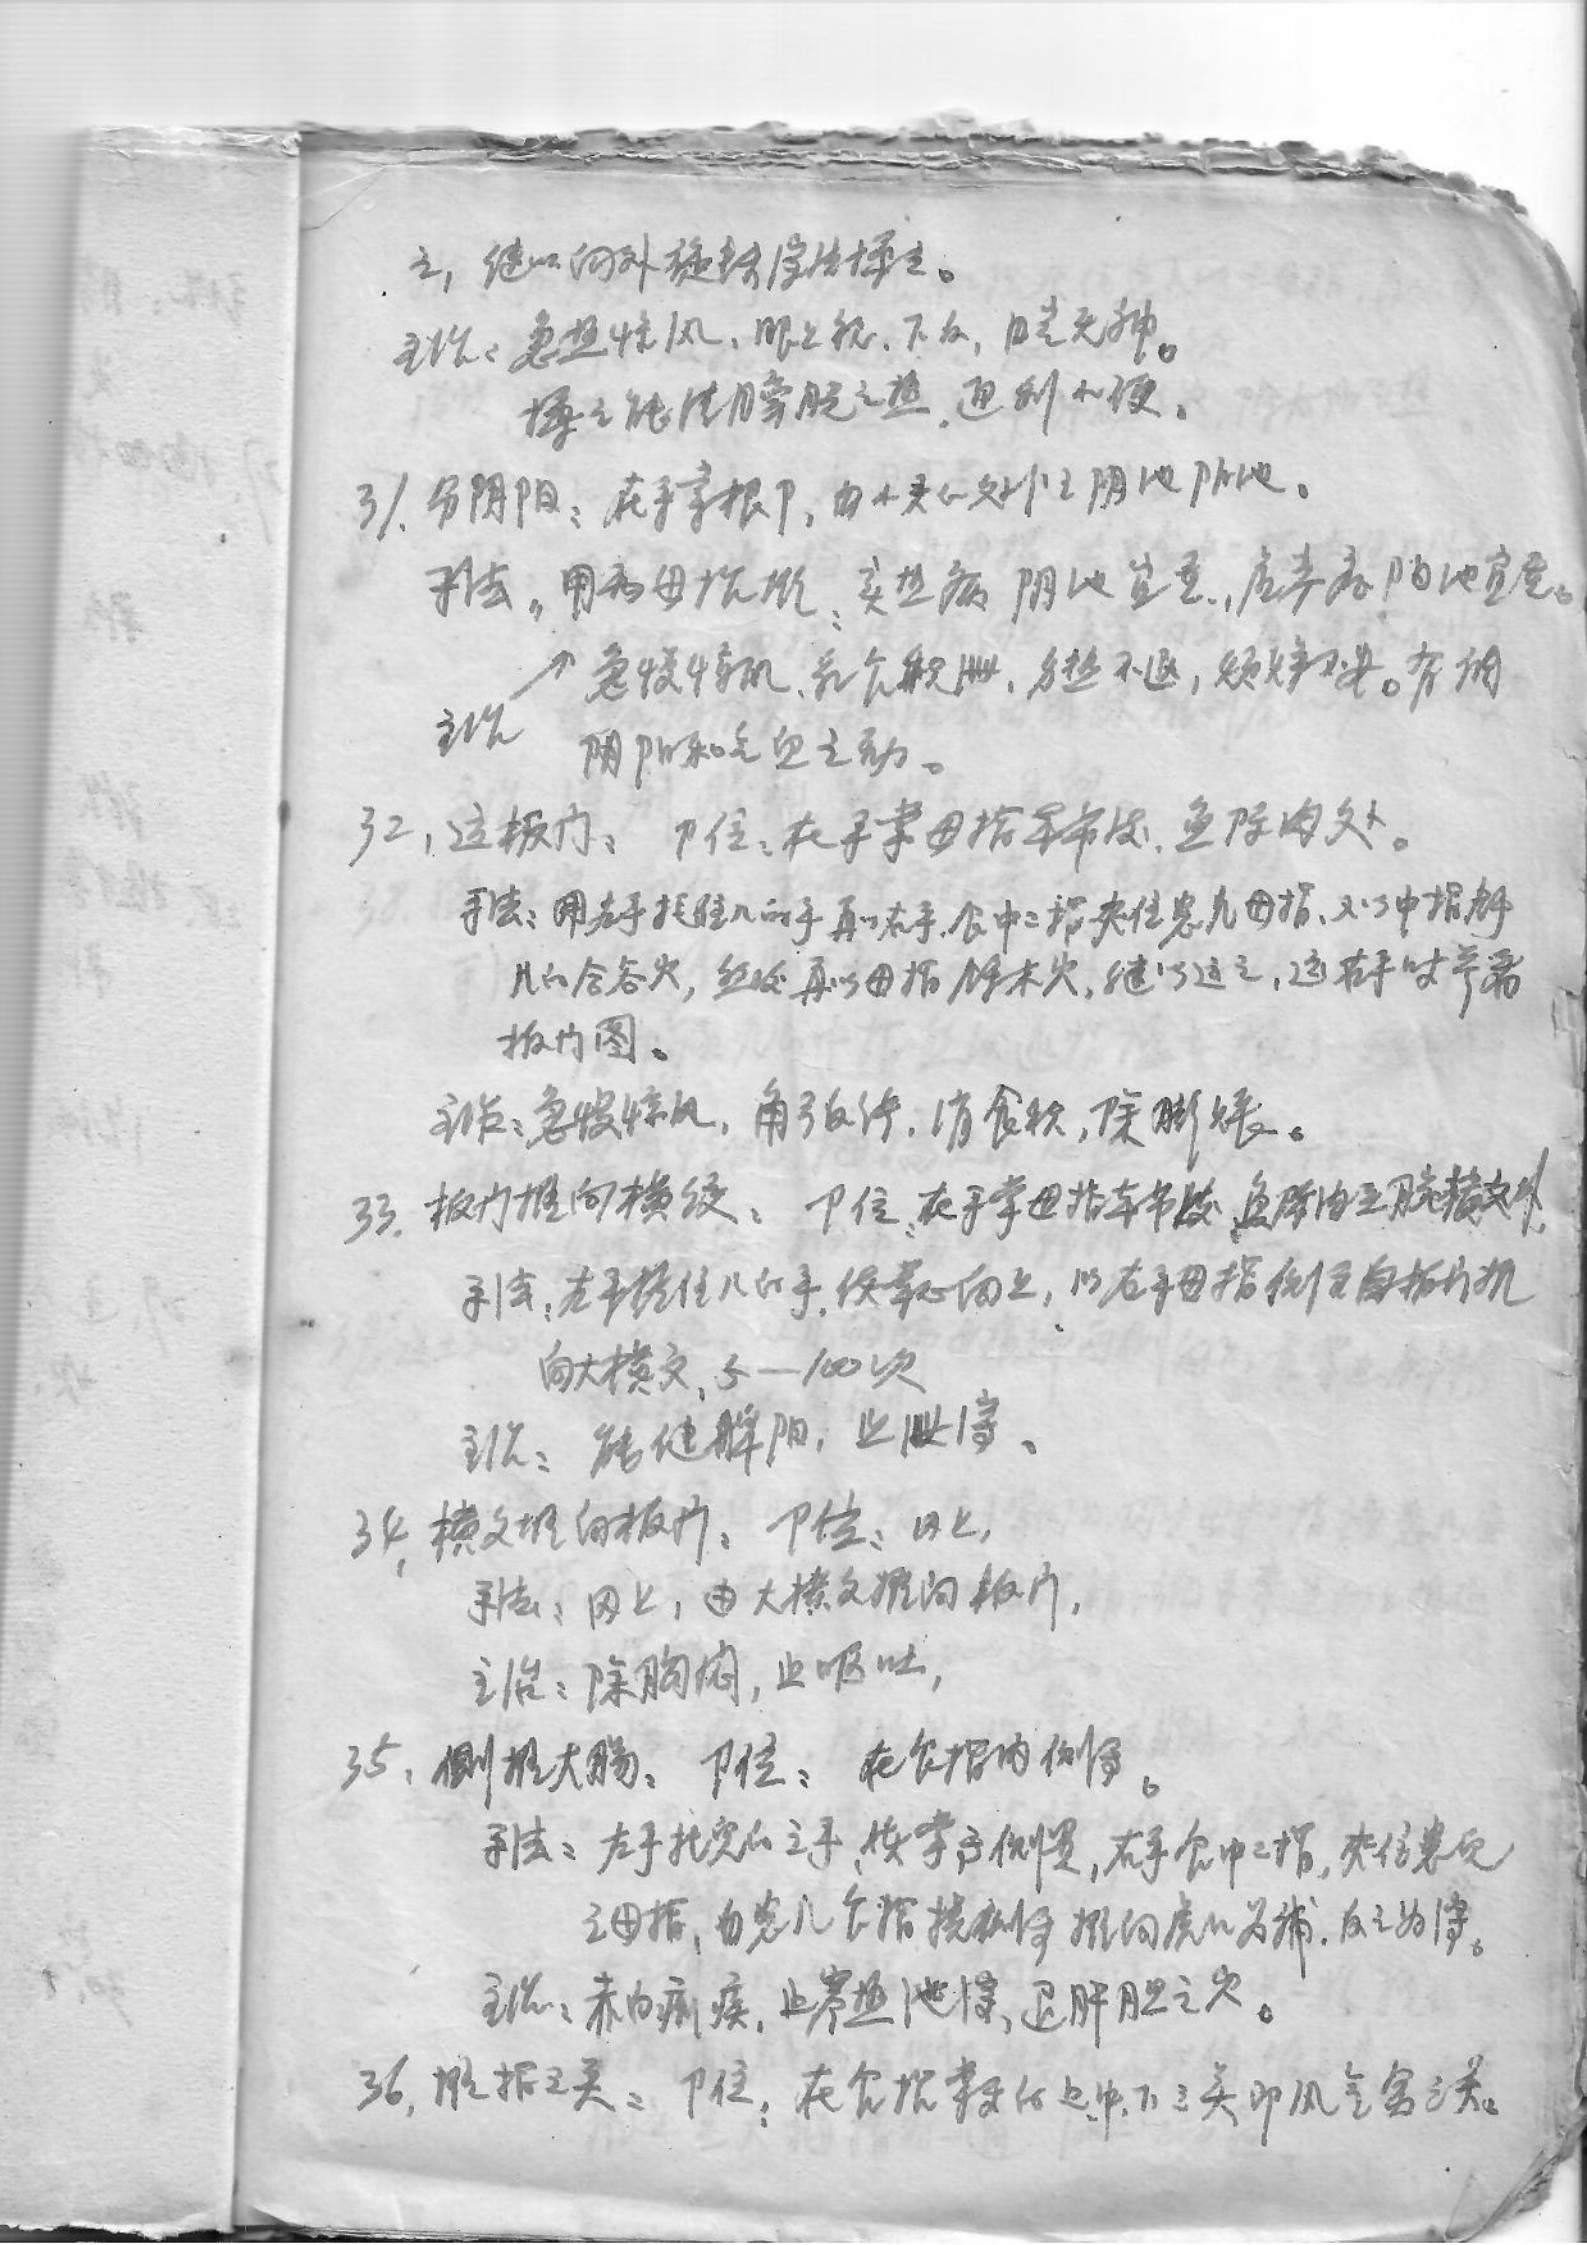 之，继以向外旋转揉法揉之。
主治：急热惊风、眼上视、下反，目光无神。
揉之能清膀胱之热、通利小便。
31. 分阴阳：在手掌根下，由小天心处外至阴池阳池。
手法：用两母指推：实热病阴池宜重，虚寒症阳池宜重。
急慢惊风、乳食积泄、身热不退，烦燥不安。有调
主治 阴阳和气血之功。
32，运板门：卩位：在手掌母指本节后、鱼际肉处。
手法：用左手托住儿的手再以右手食中二指夹住患儿母指、又以中指
儿的合谷穴，然后再以母指本穴，继以运之，运右手时参看
板门图。
主治：急慢惊风，角弓反张，消食积，除膨胀。
33. 板门推向横纹：卩位：在手掌母指本节后鱼际肉至腕横文外
手法：左手托住儿的手，使掌心向上，以右手母指侧面自板门推
向大横文、5—100次
主治：能健脾阳，止泄泻、
34，横文推向板门：卩位：同上，
手法：同上，由大横文推向板门，
主治：除胸闷，止呕吐，
35，侧推大肠：卩位：在食指内侧缘。
手法：左手托患儿之手，使掌心侧置，右手食中二指，夹住患儿
之母指，自患儿食指桡侧缘推向虎口为补，反之为泻。
主治：赤白痢疾，止寒热泄泻，退肝胆之火。
36，推指三关：卩位：在食指掌面的上中下三关即风气命三关。